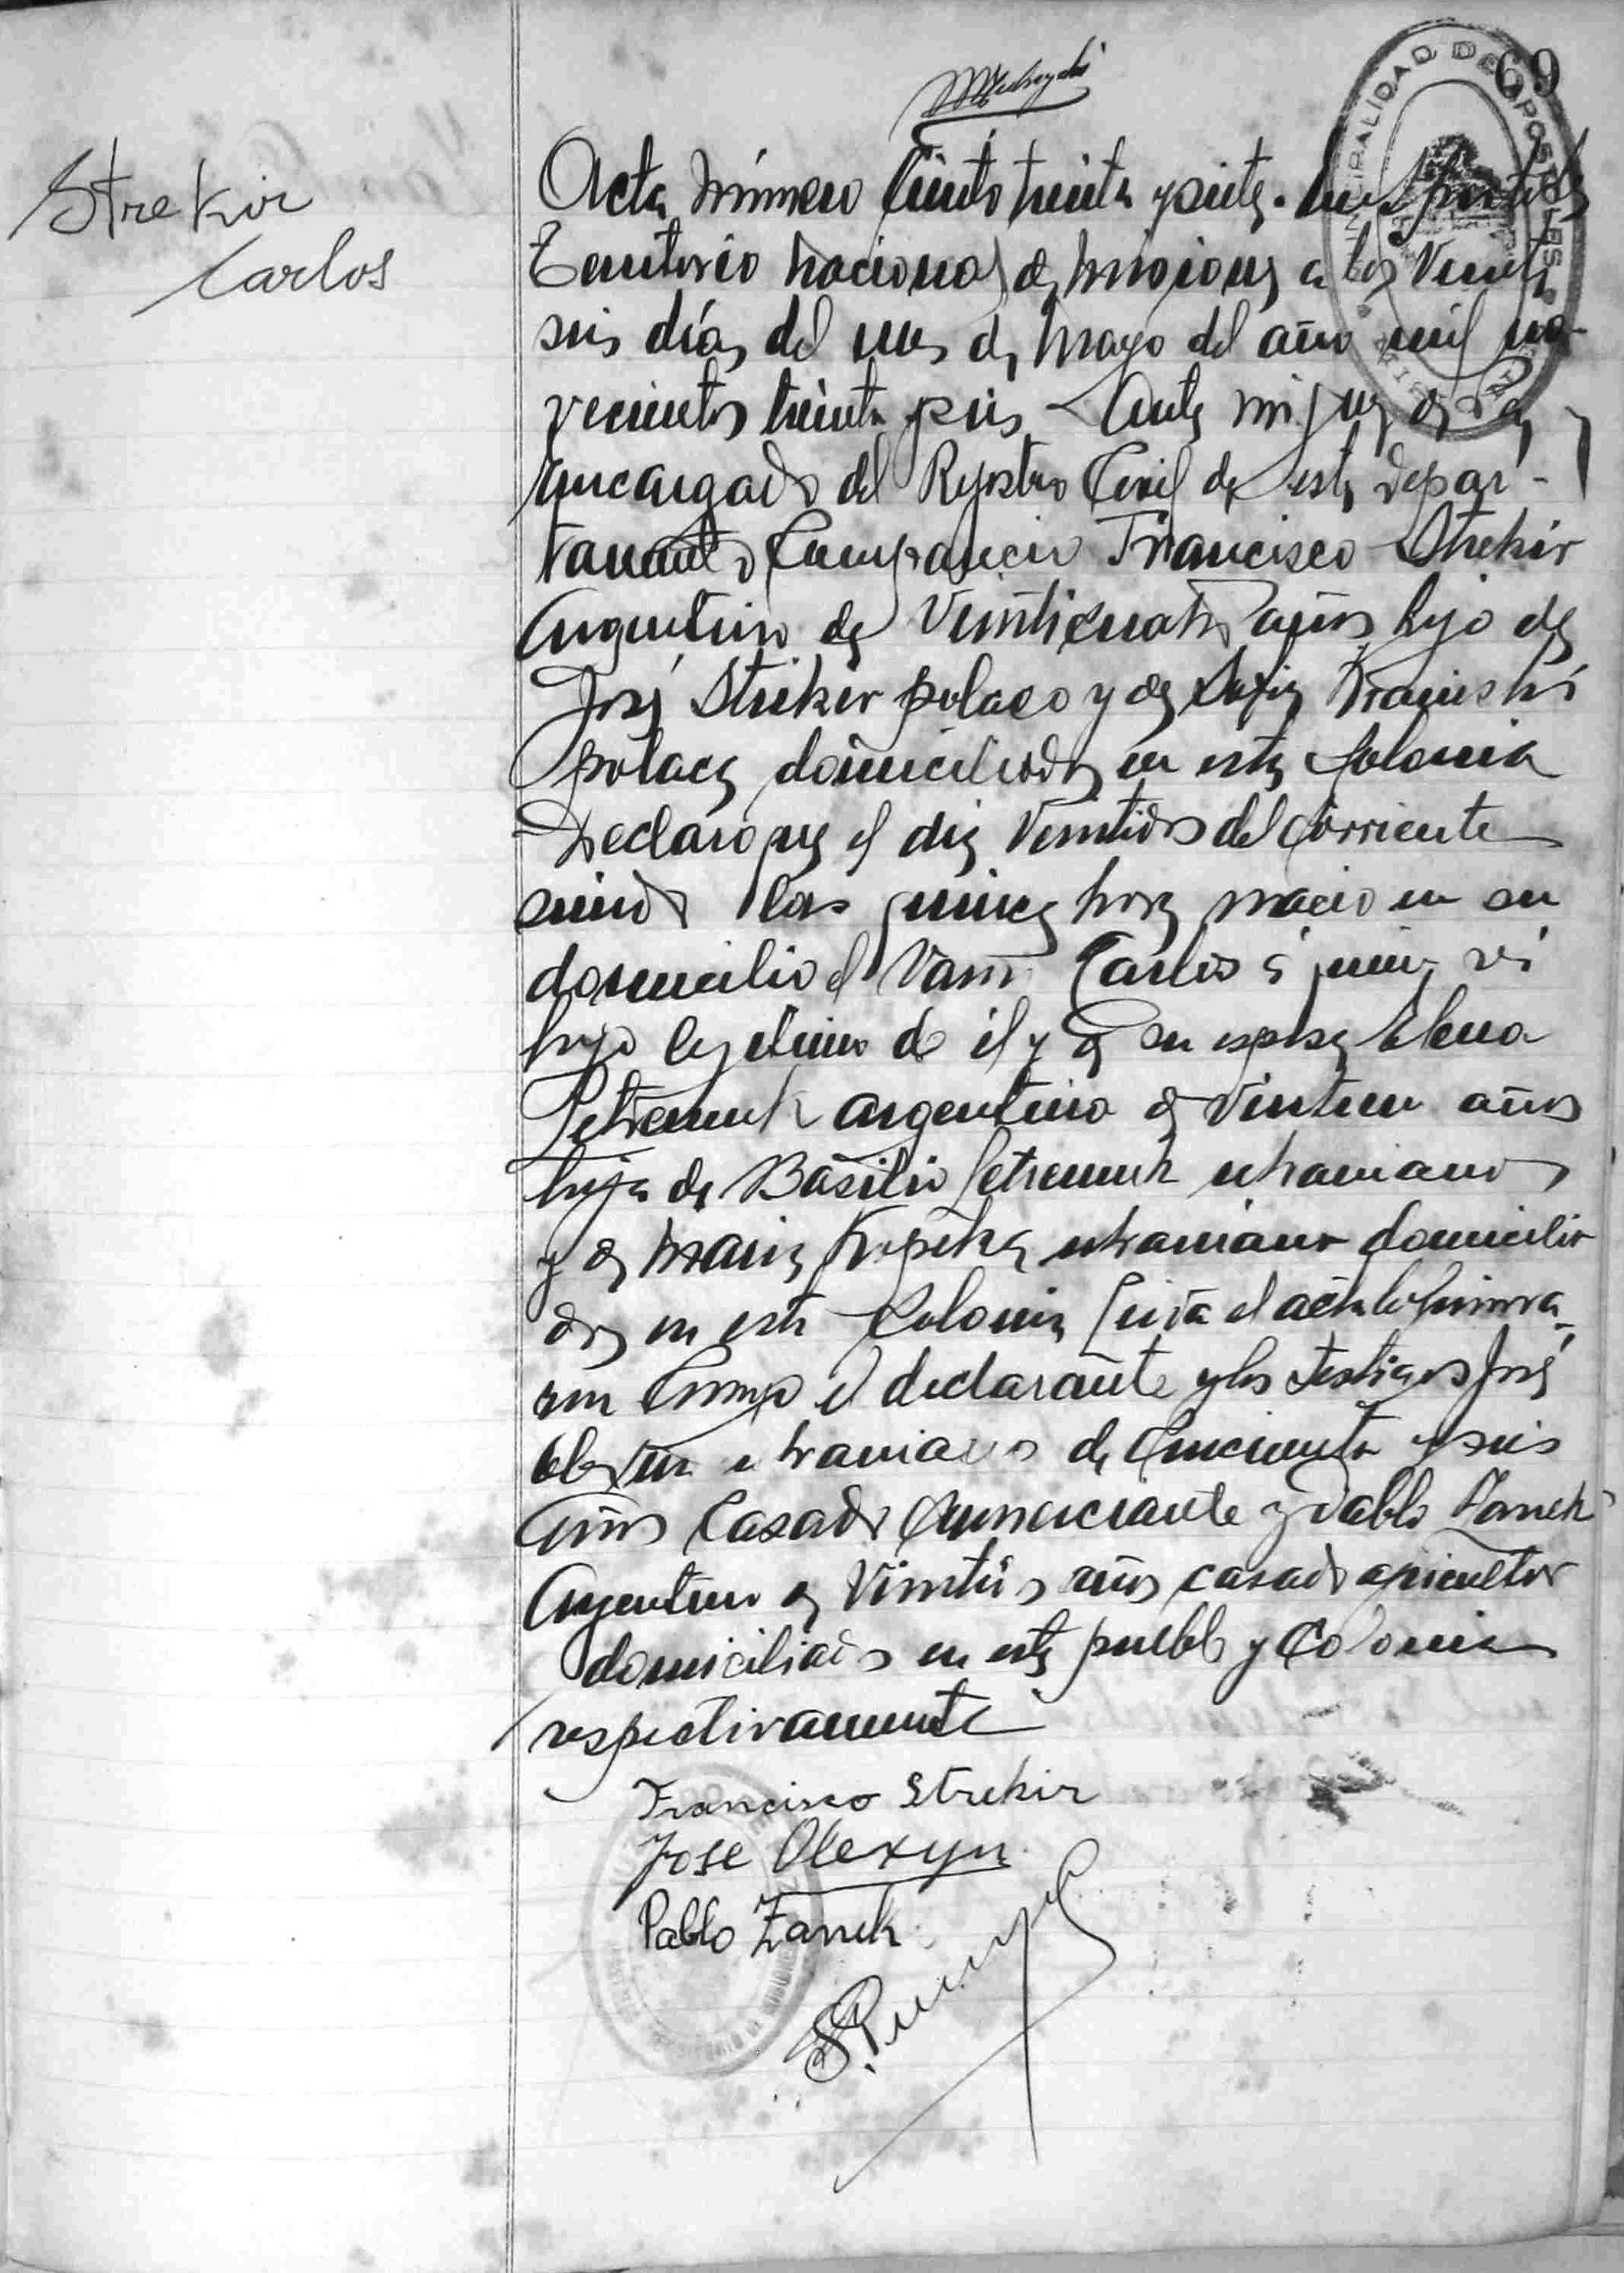 69
MUNICIPALIDAD DE APOSTOLES
Strekir
Carlos
Acta número Ciento treinta y siete. En Apostoles
Territorio Nacional de Misiones a los Veinti
seis días del mes de Mayo del año mil no-
vecientos treinta y seis Ante mi Juez de Paz y
Encargado del Registro Civil de este Depar-
tamento Comparecio Francisco Strekir
Argentino de Veinticuatro años hijo de
José Strekir polaco y de Sofia
polaca domiciliados en esta Colonia
Declaro que el dia Veintidos del corriente
siendo las quince horas nacio en su
domicilio el Varon Carlos á quien vi
hijo legitimo de él y de su esposa Elena
Petremuk argentina de Veintiun años
hija de Basilio Petremuk ukraniano
y de Maria ukraniana domicilia
dos en esta Colonia Leida el acta la firmaron
con Conmigo el declarante y los testigos José
ukraniano de Cincuenta y seis
años Casado Comerciante y Pablo Zanek
Argentino de años casado agricultor
domiciliados en este pueblo y Colonia
respectivamente
Francisco Strekir
Jose Olexyn
Pablo Zanek